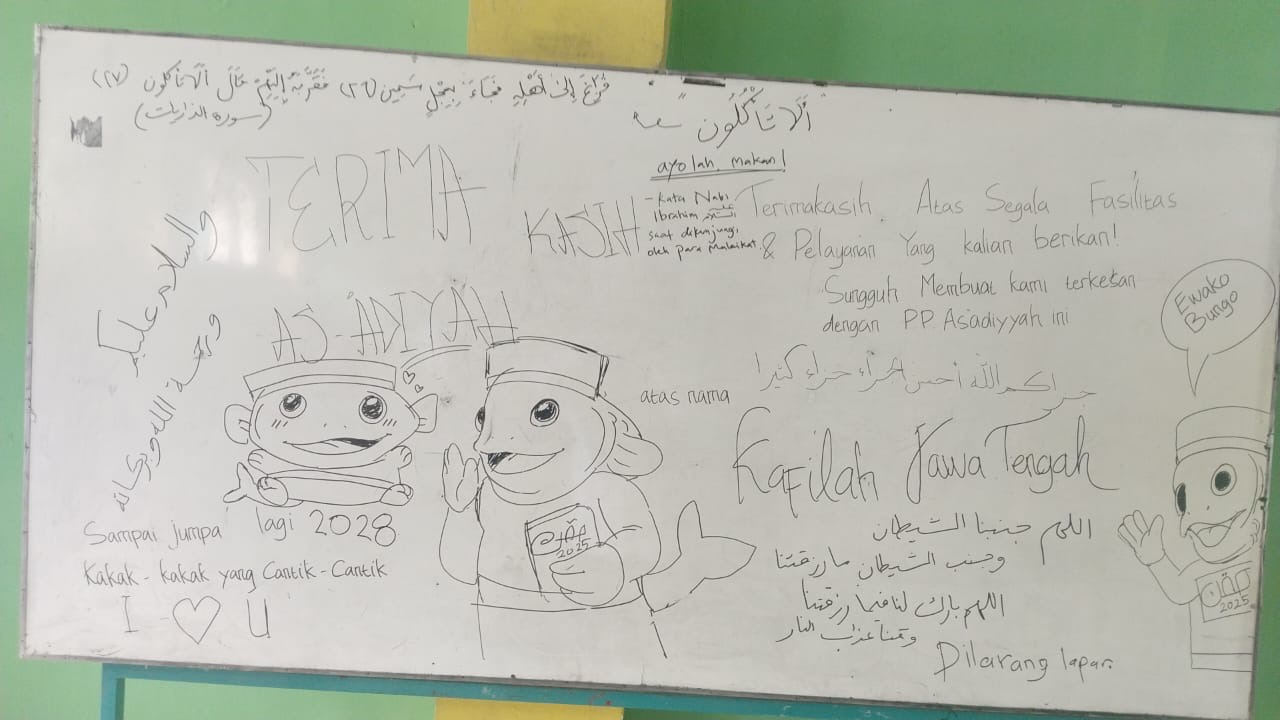 فَرَاغَ إِلَىٰ أَهْلِهِ فَجَاءَ بِعِجْلٍ سَمِينٍ (٢٦) فَقَرَّبَهُ إِلَيْهِمْ قَالَ أَلَا تَأْكُلُونَ (٢٧)
(سورة الذاريات)
أَلَا تَأْكُلُونَ
ayolah, makan!
- Kata Nabi
Ibrahim عليه السلام
saat dikunjungi
oleh para malaikat.
TERIMA
KASIH
AS-ADIYAH
والسلام عليكم
ورحمة الله وبركاته
Terimakasih Atas Segala Fasilitas
& Pelayanan Yang kalian berikan!
Sungguh Membuat kami terkesan
dengan PP. As'adiyyah ini
جزاكم الله أحسن الجزاء جزاء كثيرا
atas nama
Kafilah Jawa Tengah
Ewako
Bungo
اللهم جنبنا الشيطان
وجنب الشيطان ما رزقتنا
اللهم بارك لنا فيما رزقتنا
وقنا عذاب النار
Dilarang lapar.
Sampai jumpa lagi 2028
Kakak-kakak yang Cantik-Cantik
I ♡ U
2025
2025